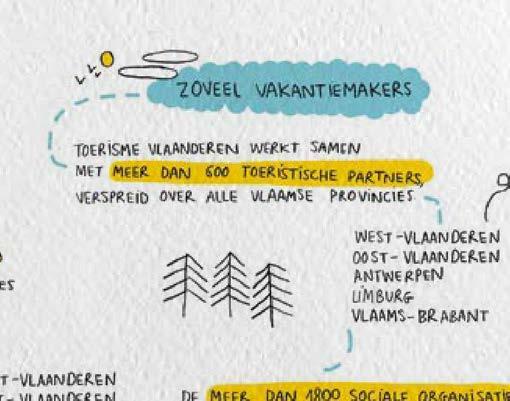 ZOVEEL VAKANTIEMAKERS
TOERISME VLAANDEREN WERKT SAMEN
MET MEER DAN 600 TOERISTISCHE PARTNERS,
VERSPREID OVER ALLE VLAAMSE PROVINCIES
WEST-VLAANDEREN
OOST-VLAANDEREN
ANTWERPEN
LIMBURG
VLAAMS-BRABANT
T-VLAANDEREN
DE MEER DAN 1800 SOCIALE ORGANISATIE